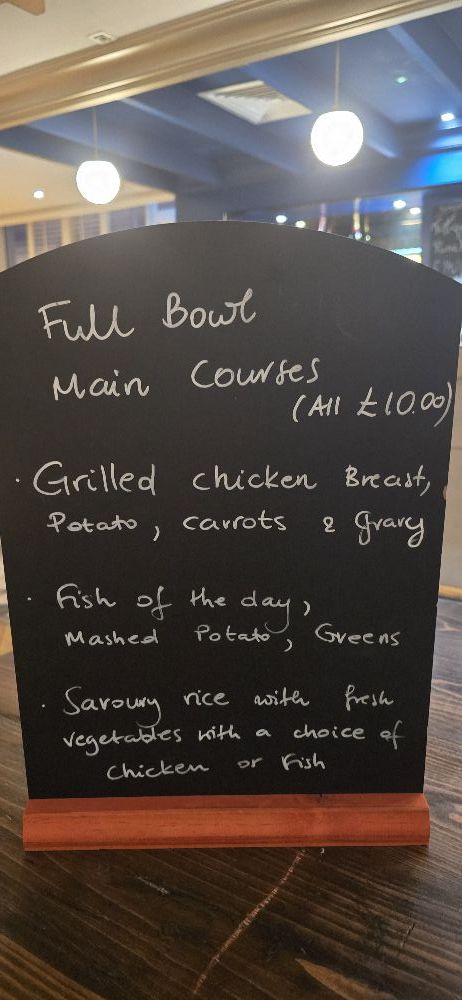 Full Bowl
Main Courses
(All £10.00)
· Grilled chicken Breast,
Potato, carrots & gravy
· Fish of the day,
Mashed Potato, Greens
· Savoury rice with fresh
vegetables with a choice of
chicken or Fish